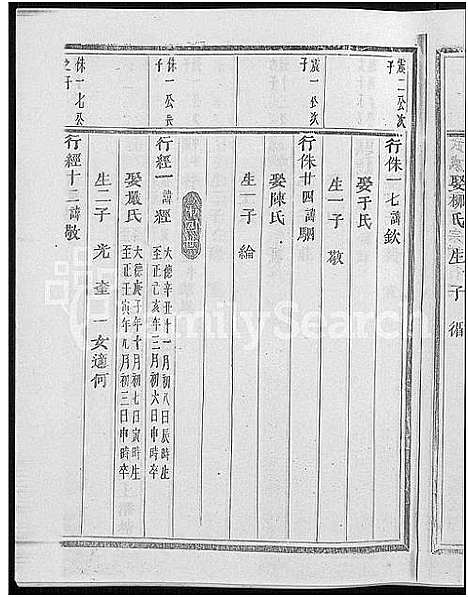 娶柳氏 生 子
震二公次子
行侏一七諱欽
娶于氏
生一子 敬
震一公次子
行侏廿四諱駰
娶陳氏
生一子 綸
侏一公長子
行經一諱經 大德辛丑十一月初八日辰時生
至正己亥年三月初六日申時卒
娶嚴氏 大德庚子年十月初七日寅時生
至正壬寅年九月初三日申時卒
生二子 光 奎 一女適何
侏一七公之子
行經十二諱敬
FamilySearch